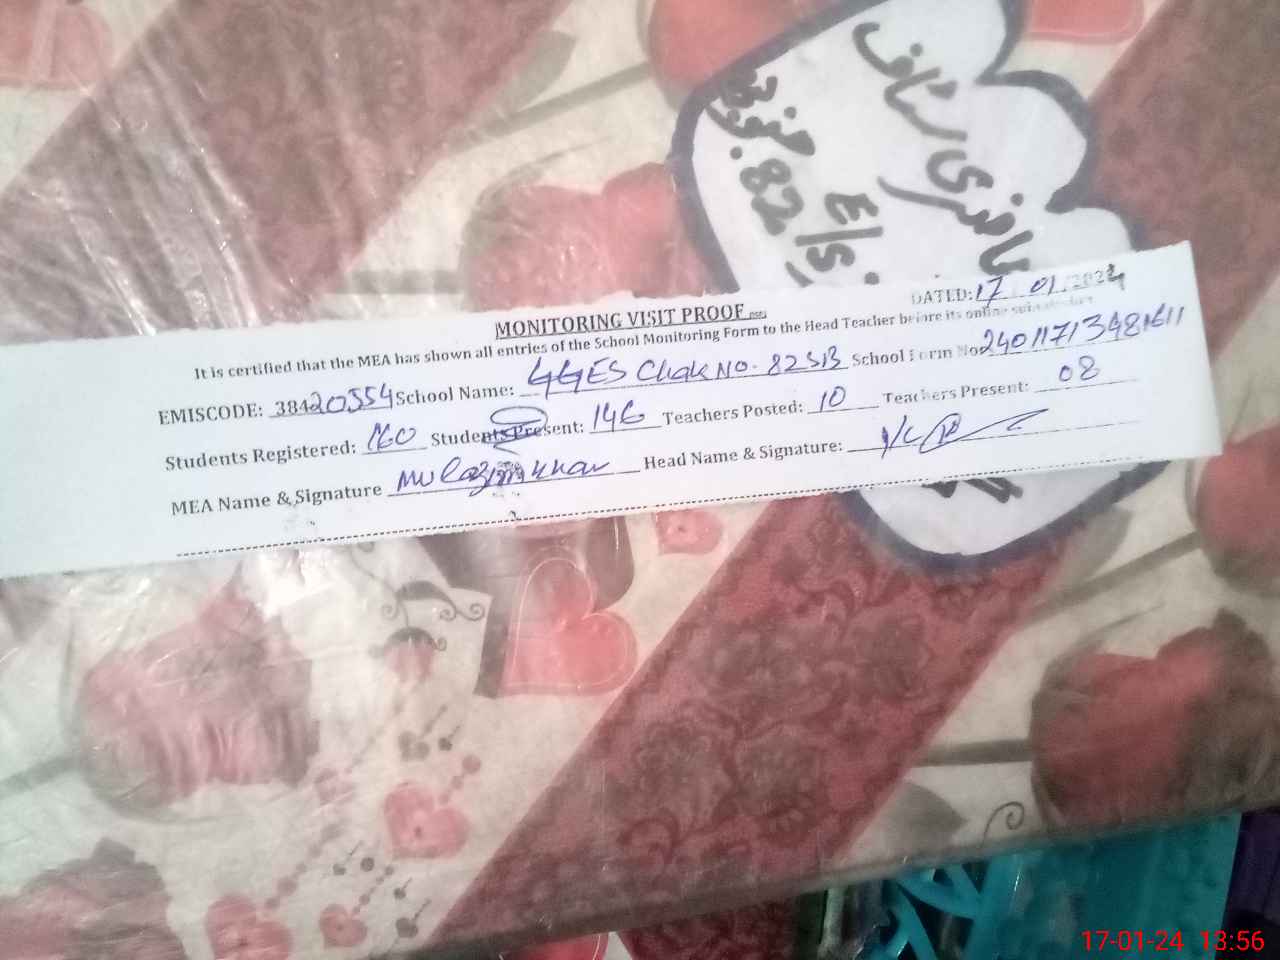 حاضری سٹاف
E/S
82
MONITORING VISIT PROOF
DATED: 17 01 2024
It is certified that the MEA has shown all entries of the School Monitoring Form to the Head Teacher before its online submission
EMISCODE: 38420554 School Name: GGES Chak NO. 82 SB School Form No 24011713481611
Students Registered: 160 Students Present: 146 Teachers Posted: 10 Teachers Present: 08
MEA Name & Signature Mulazim Khan Head Name & Signature:
17-01-24 13:56